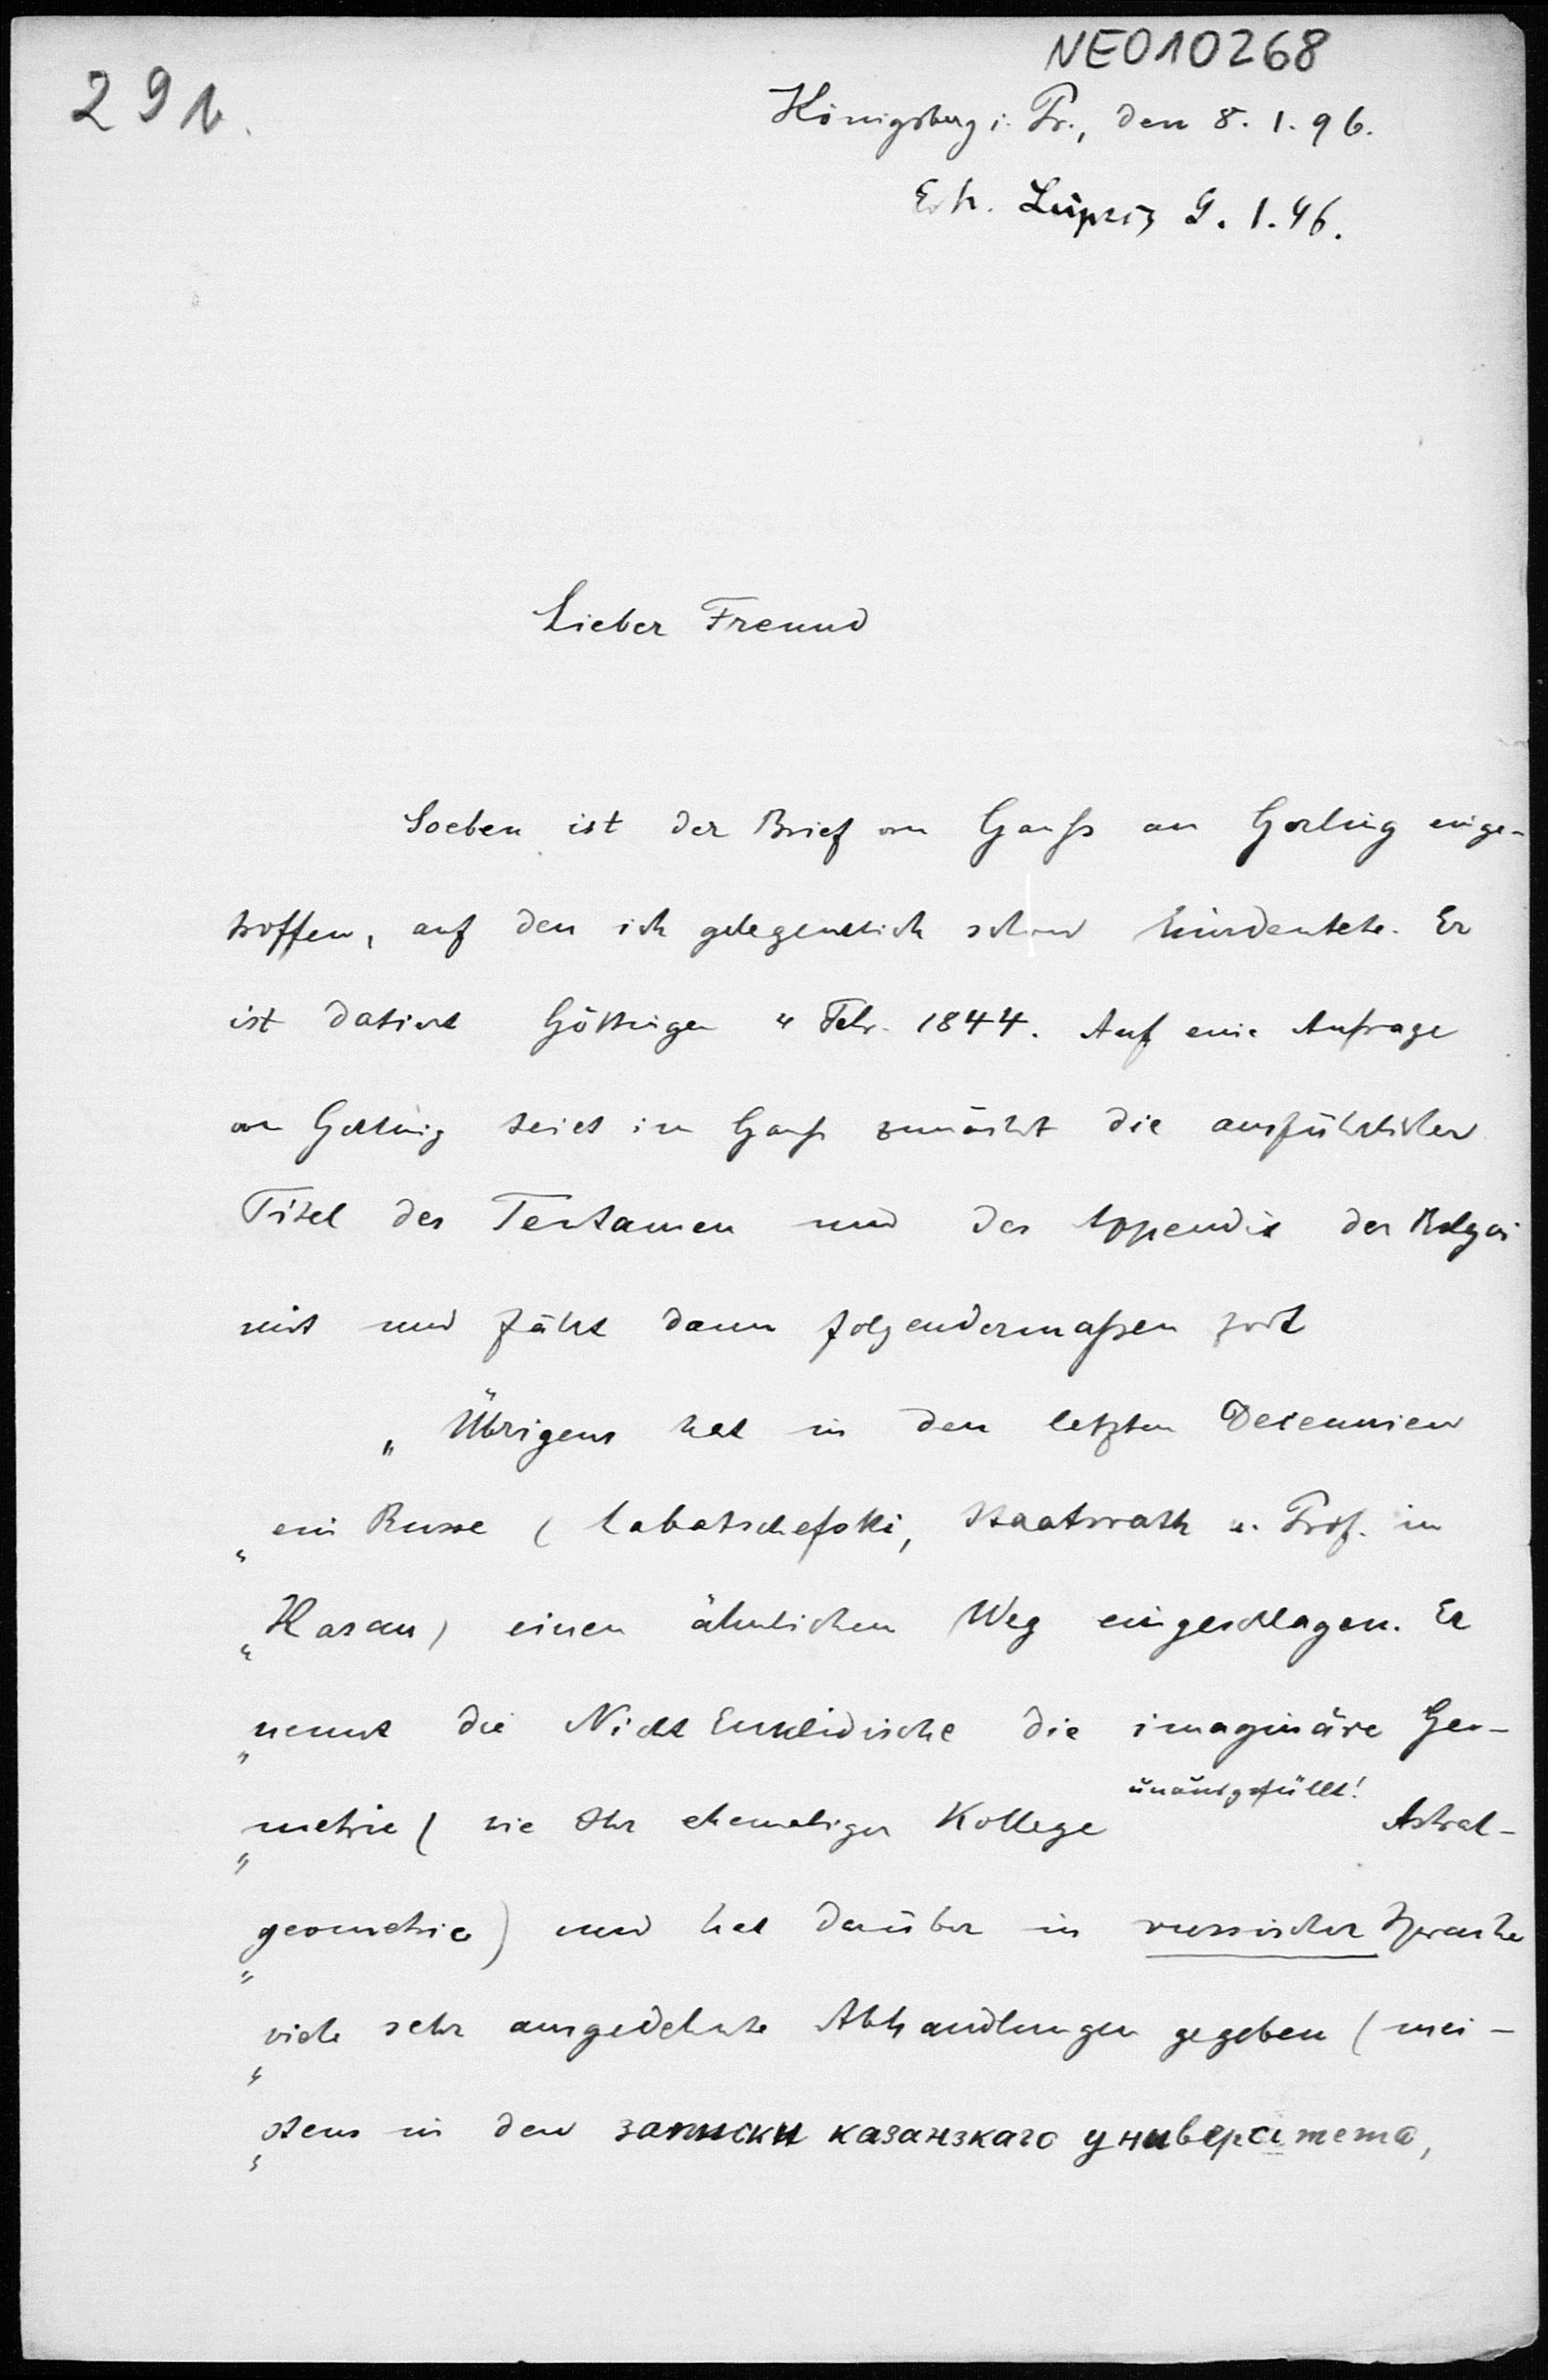 NE010268
291.
Königsberg i. Pr., den 8. 1. 96.
Erh. Leipzig 9. 1. 96.
Lieber Freund
Soeben ist der Brief von Gauß an Gerling einge-
troffen, auf den ich gelegentlich schon hindeutete. Er
ist datirt Göttingen 4 Febr. 1844. Auf eine Anfrage
von Gerling teilt im Gauß zunächst die ausführlichen
Titel des Tentamen und des Appendix der Bolyai
mit und fährt dann folgendermaßen fort
„Übrigens hat in den letzten Decennien
„ein Russe (Labatschefski, Staatsrath u. Prof. in
„Kasan) einen ähnlichen Weg eingeschlagen. Er
„nennt die Nicht Euklidische die imaginäre Geo-
unausgefüllt!
„metrie (wie Ihr ehemaliger Kollege Astral-
„geometrie) und hat darüber in russischer Sprache
„viele sehr ausgedehnte Abhandlungen gegeben (mei-
„stens in den записки казанзкаго универсітета,